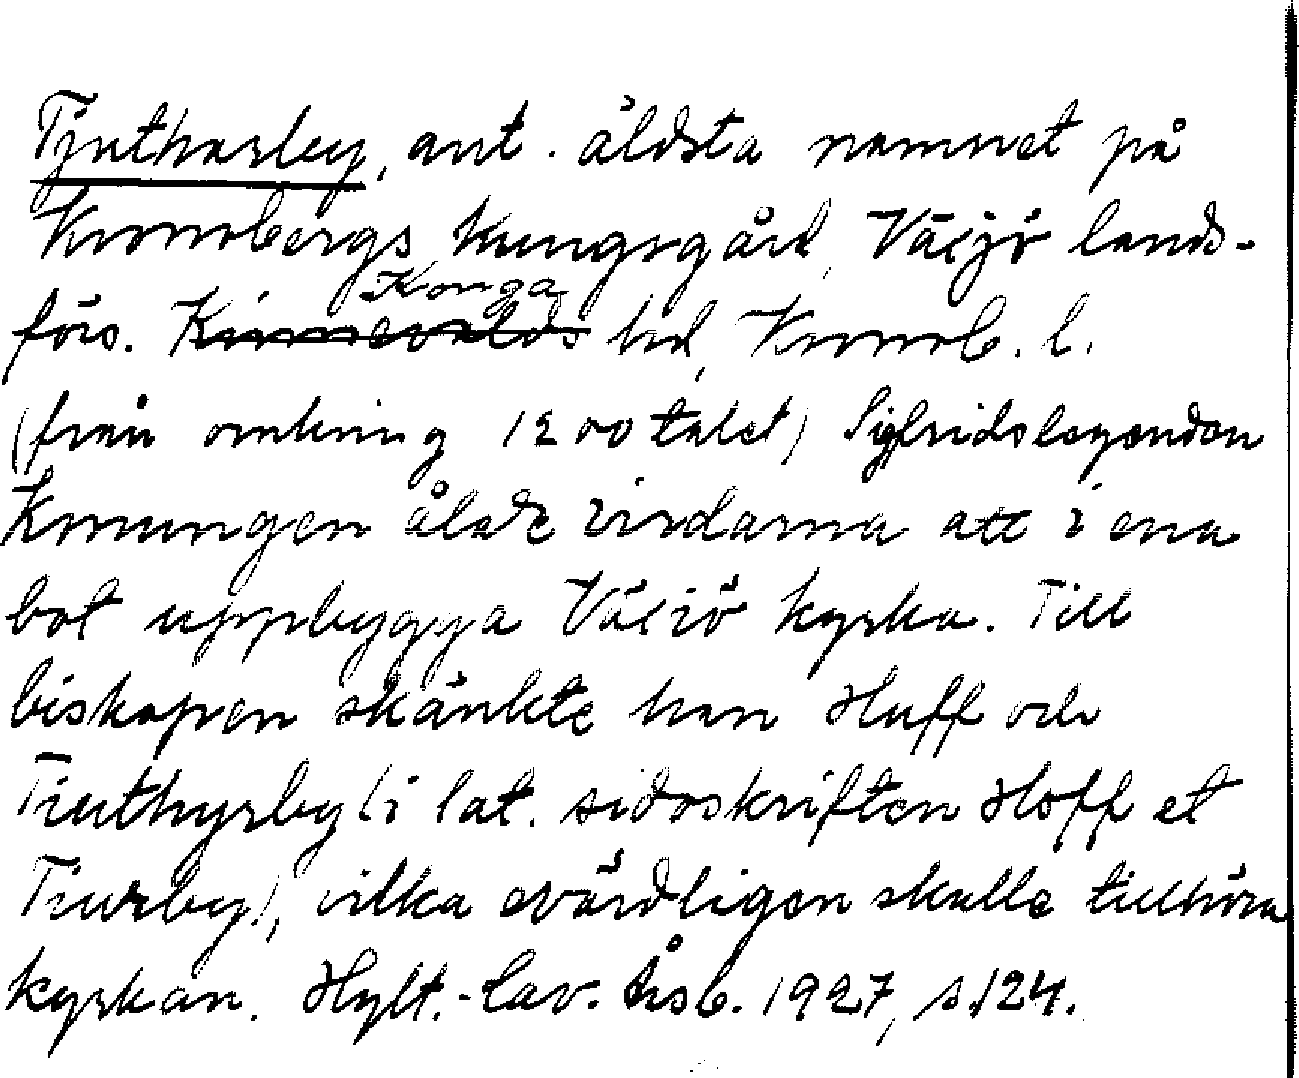 Tjutharsby, ant. äldsta namnet på
Kronobergs kungsgård, Växjö lands-
förs. Konga hd, Kronob. l.
(från omkring 1200 talet) Sigfridslegenden
Konungen ålade virdarna att i ena
bot uppbygga Växiö kyrka. Till
biskopen skänkte han Huff och
Tiuthyrby (i lat. sidoskriften Hoff et
Tiurby), vilka evärdligen skulle tillhöra
kyrkan. Hylt.-Cav. Årsb. 1927, s. 124.